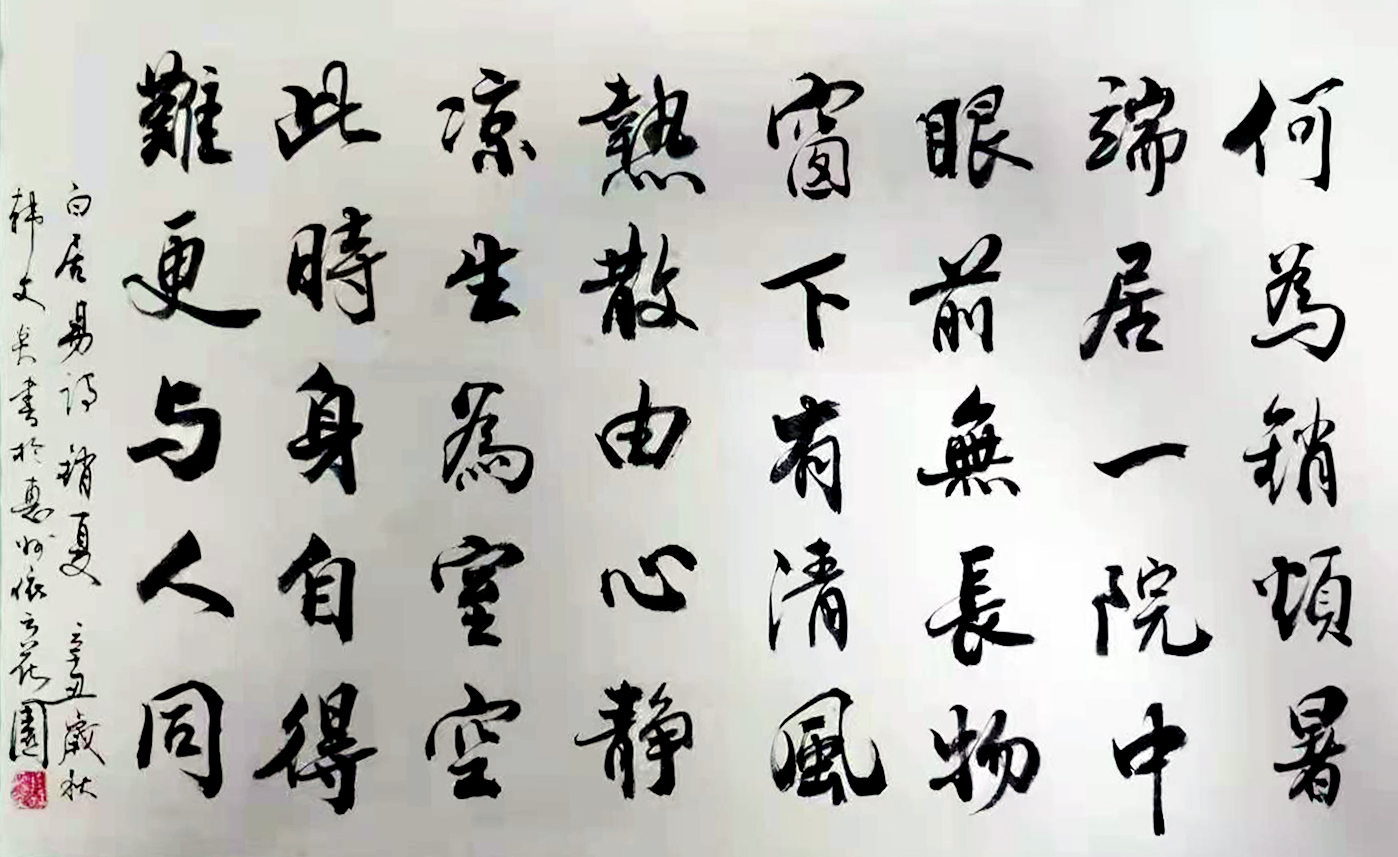 何為銷煩暑
端居一院中
眼前無長物
窗下有清風
熱散由心静
凉生為室空
此時身自得
難更与人同
白居易詩 銷夏 辛丑歲秋
韩文書於惠州依云花園